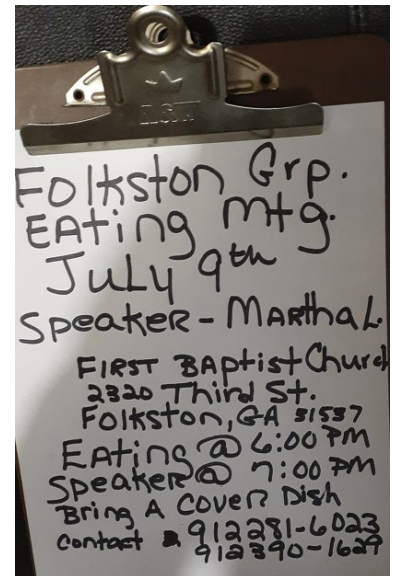 Folkston Grp.
EAting mtg.
July 9th
Speaker - Martha L.
First Baptist Church
2320 Third St.
Folkston, GA 31537
Eating @ 6:00 PM
Speaker @ 7:00 PM
Bring A Cover Dish
Contact 912281-6023
912390-1629